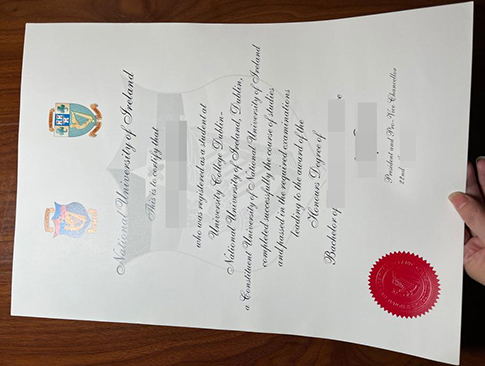 National University of Ireland
This is to certify that
who was registered as a student at
University College Dublin-
National University of Ireland, Dublin,
a Constituent University of National University of Ireland
completed successfully the course of studies
and passed in the required examinations
leading to the award of the
Honours Degree of
Bachelor of
President and Pro-Vice Chancellor
22nd